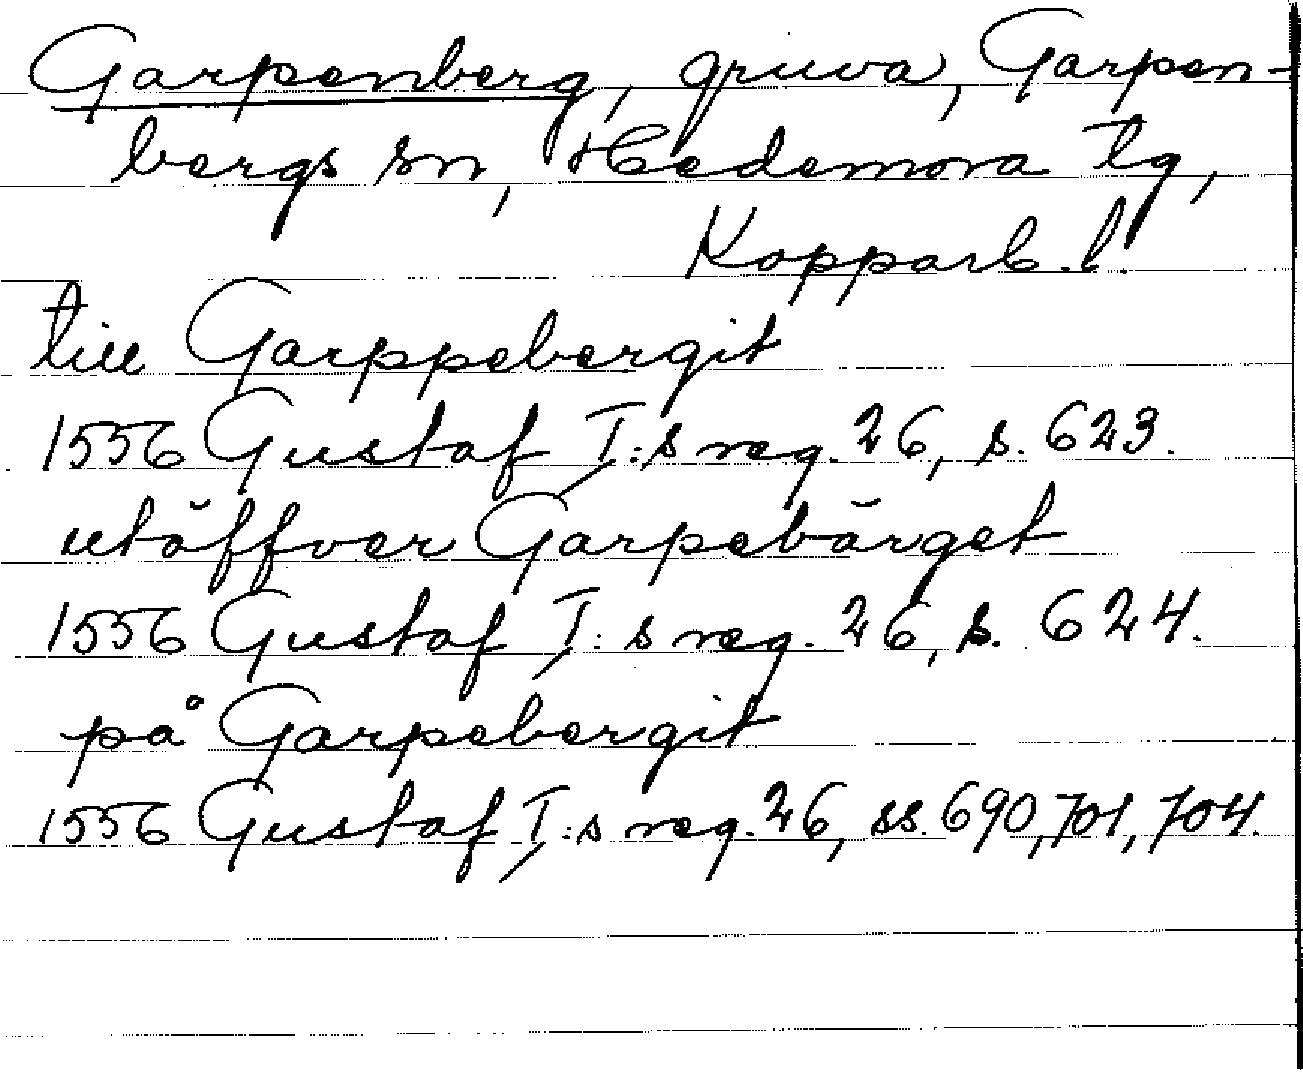 Garpenberg, gruva, Garpen-
bergs sn, Hedemora tg,
Kopparb. l.
till Garppebergit
1556 Gustaf I:s reg. 26, s. 623.
utöffver Garpebärget
1556 Gustaf I:s reg. 26, s. 624.
på Garpebergit
1556 Gustaf I:s reg. 26, ss. 690, 701, 704.